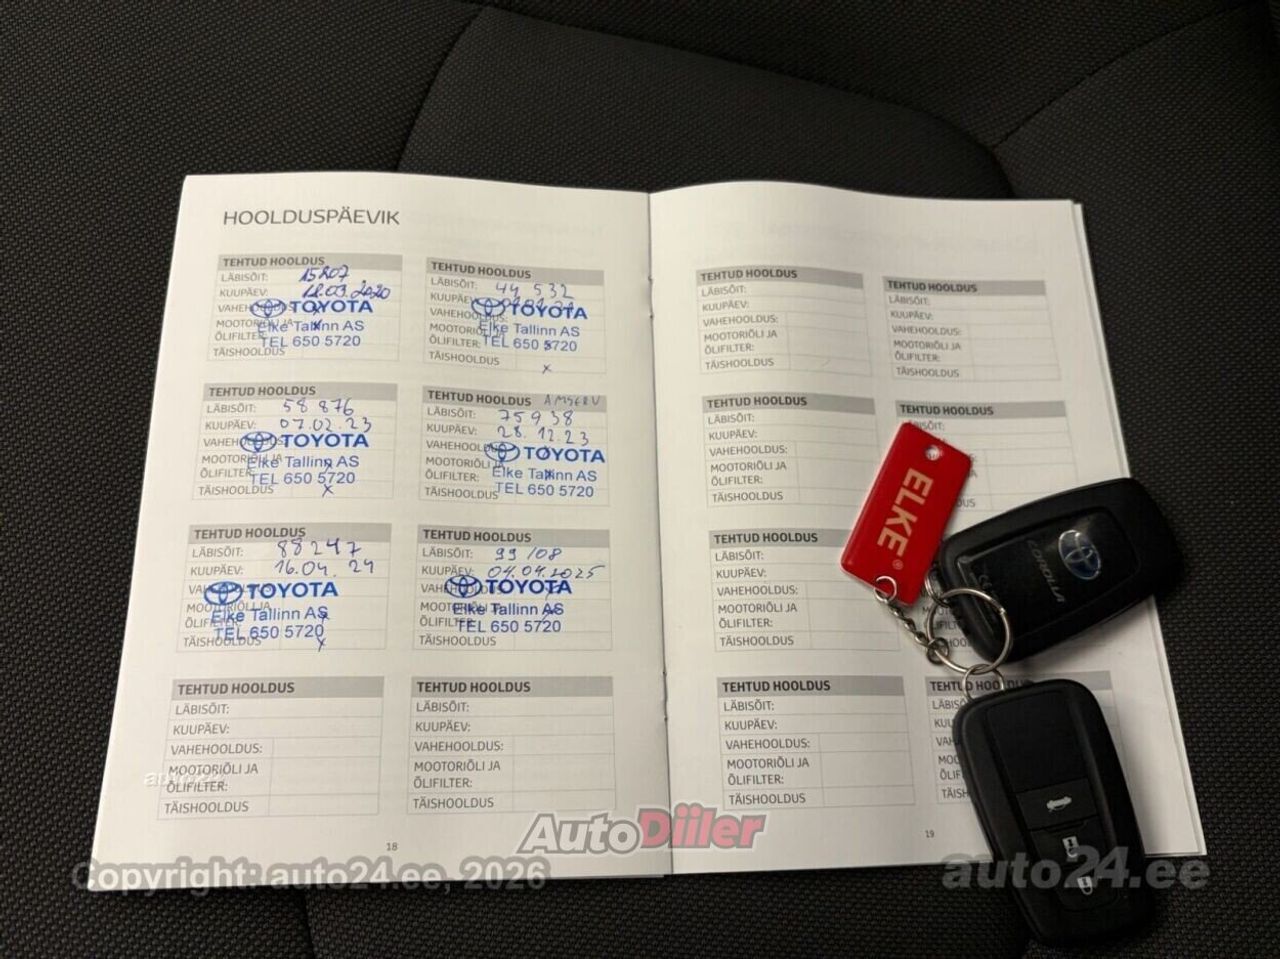 HOOLDUSPÄEVIK
TEHTUD HOOLDUS
LÄBISÕIT: 15207
KUUPÄEV: 12.03.2020
TOYOTA
MOOTORIÕLI JA
Elke Tallinn AS
ÕLIFILTER:
TEL 650 5720
TÄISHOOLDUS
TEHTUD HOOLDUS
LÄBISÕIT: 44 532
KUUPÄEV:
TOYOTA
VAHEHOOLDUS:
MOOTORIÕLI JA
Elke Tallinn AS
ÕLIFILTER:
TEL 650 5720
TÄISHOOLDUS
x
TEHTUD HOOLDUS
LÄBISÕIT: 58 876
KUUPÄEV: 07.02.23
TOYOTA
MOOTORIÕLI JA
Elke Tallinn AS
ÕLIFILTER:
TEL 650 5720
TÄISHOOLDUS x
TEHTUD HOOLDUS AMSERV
LÄBISÕIT: 75938
KUUPÄEV: 28.12.23
TOYOTA
MOOTORIÕLI JA
Elke Tallinn AS
ÕLIFILTER:
TEL 650 5720
TÄISHOOLDUS
TEHTUD HOOLDUS
LÄBISÕIT: 88247
KUUPÄEV: 16.04.24
TOYOTA
MOOTORIÕLI JA
Elke Tallinn AS
ÕLIFILTER:
TEL 650 5720
TÄISHOOLDUS x
TEHTUD HOOLDUS
LÄBISÕIT: 99108
KUUPÄEV: 04.04.2025
TOYOTA
MOOTORIÕLI JA
Elke Tallinn AS
ÕLIFILTER:
TEL 650 5720
TÄISHOOLDUS
TEHTUD HOOLDUS
LÄBISÕIT:
KUUPÄEV:
VAHEHOOLDUS:
MOOTORIÕLI JA
ÕLIFILTER:
TÄISHOOLDUS
TEHTUD HOOLDUS
LÄBISÕIT:
KUUPÄEV:
VAHEHOOLDUS:
MOOTORIÕLI JA
ÕLIFILTER:
TÄISHOOLDUS
18
TEHTUD HOOLDUS
LÄBISÕIT:
KUUPÄEV:
VAHEHOOLDUS:
MOOTORIÕLI JA
ÕLIFILTER:
TÄISHOOLDUS
TEHTUD HOOLDUS
LÄBISÕIT:
KUUPÄEV:
VAHEHOOLDUS:
MOOTORIÕLI JA
ÕLIFILTER:
TÄISHOOLDUS
TEHTUD HOOLDUS
LÄBISÕIT:
KUUPÄEV:
VAHEHOOLDUS:
MOOTORIÕLI JA
ÕLIFILTER:
TÄISHOOLDUS
TEHTUD HOOLDUS
TEHTUD HOOLDUS
LÄBISÕIT:
KUUPÄEV:
VAHEHOOLDUS:
MOOTORIÕLI JA
ÕLIFILTER:
TÄISHOOLDUS
TEHTUD HOOLDUS
LÄBISÕIT:
KUUPÄEV:
VAHEHOOLDUS:
MOOTORIÕLI JA
ÕLIFILTER:
TÄISHOOLDUS
TEHTUD
19
ELKE®
COROLLA
AutoDiiler
Copyright: auto24.ee, 2026
auto24.ee